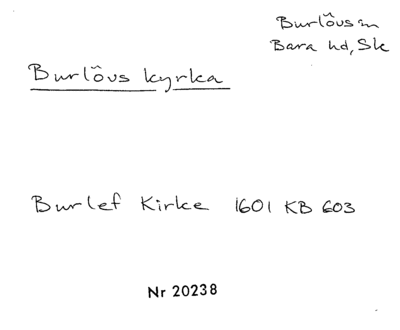 Burlövs sn
Bara hd, Sk
Burlövs kyrka
Burlef Kirke 1601 KB 603
Nr 20238